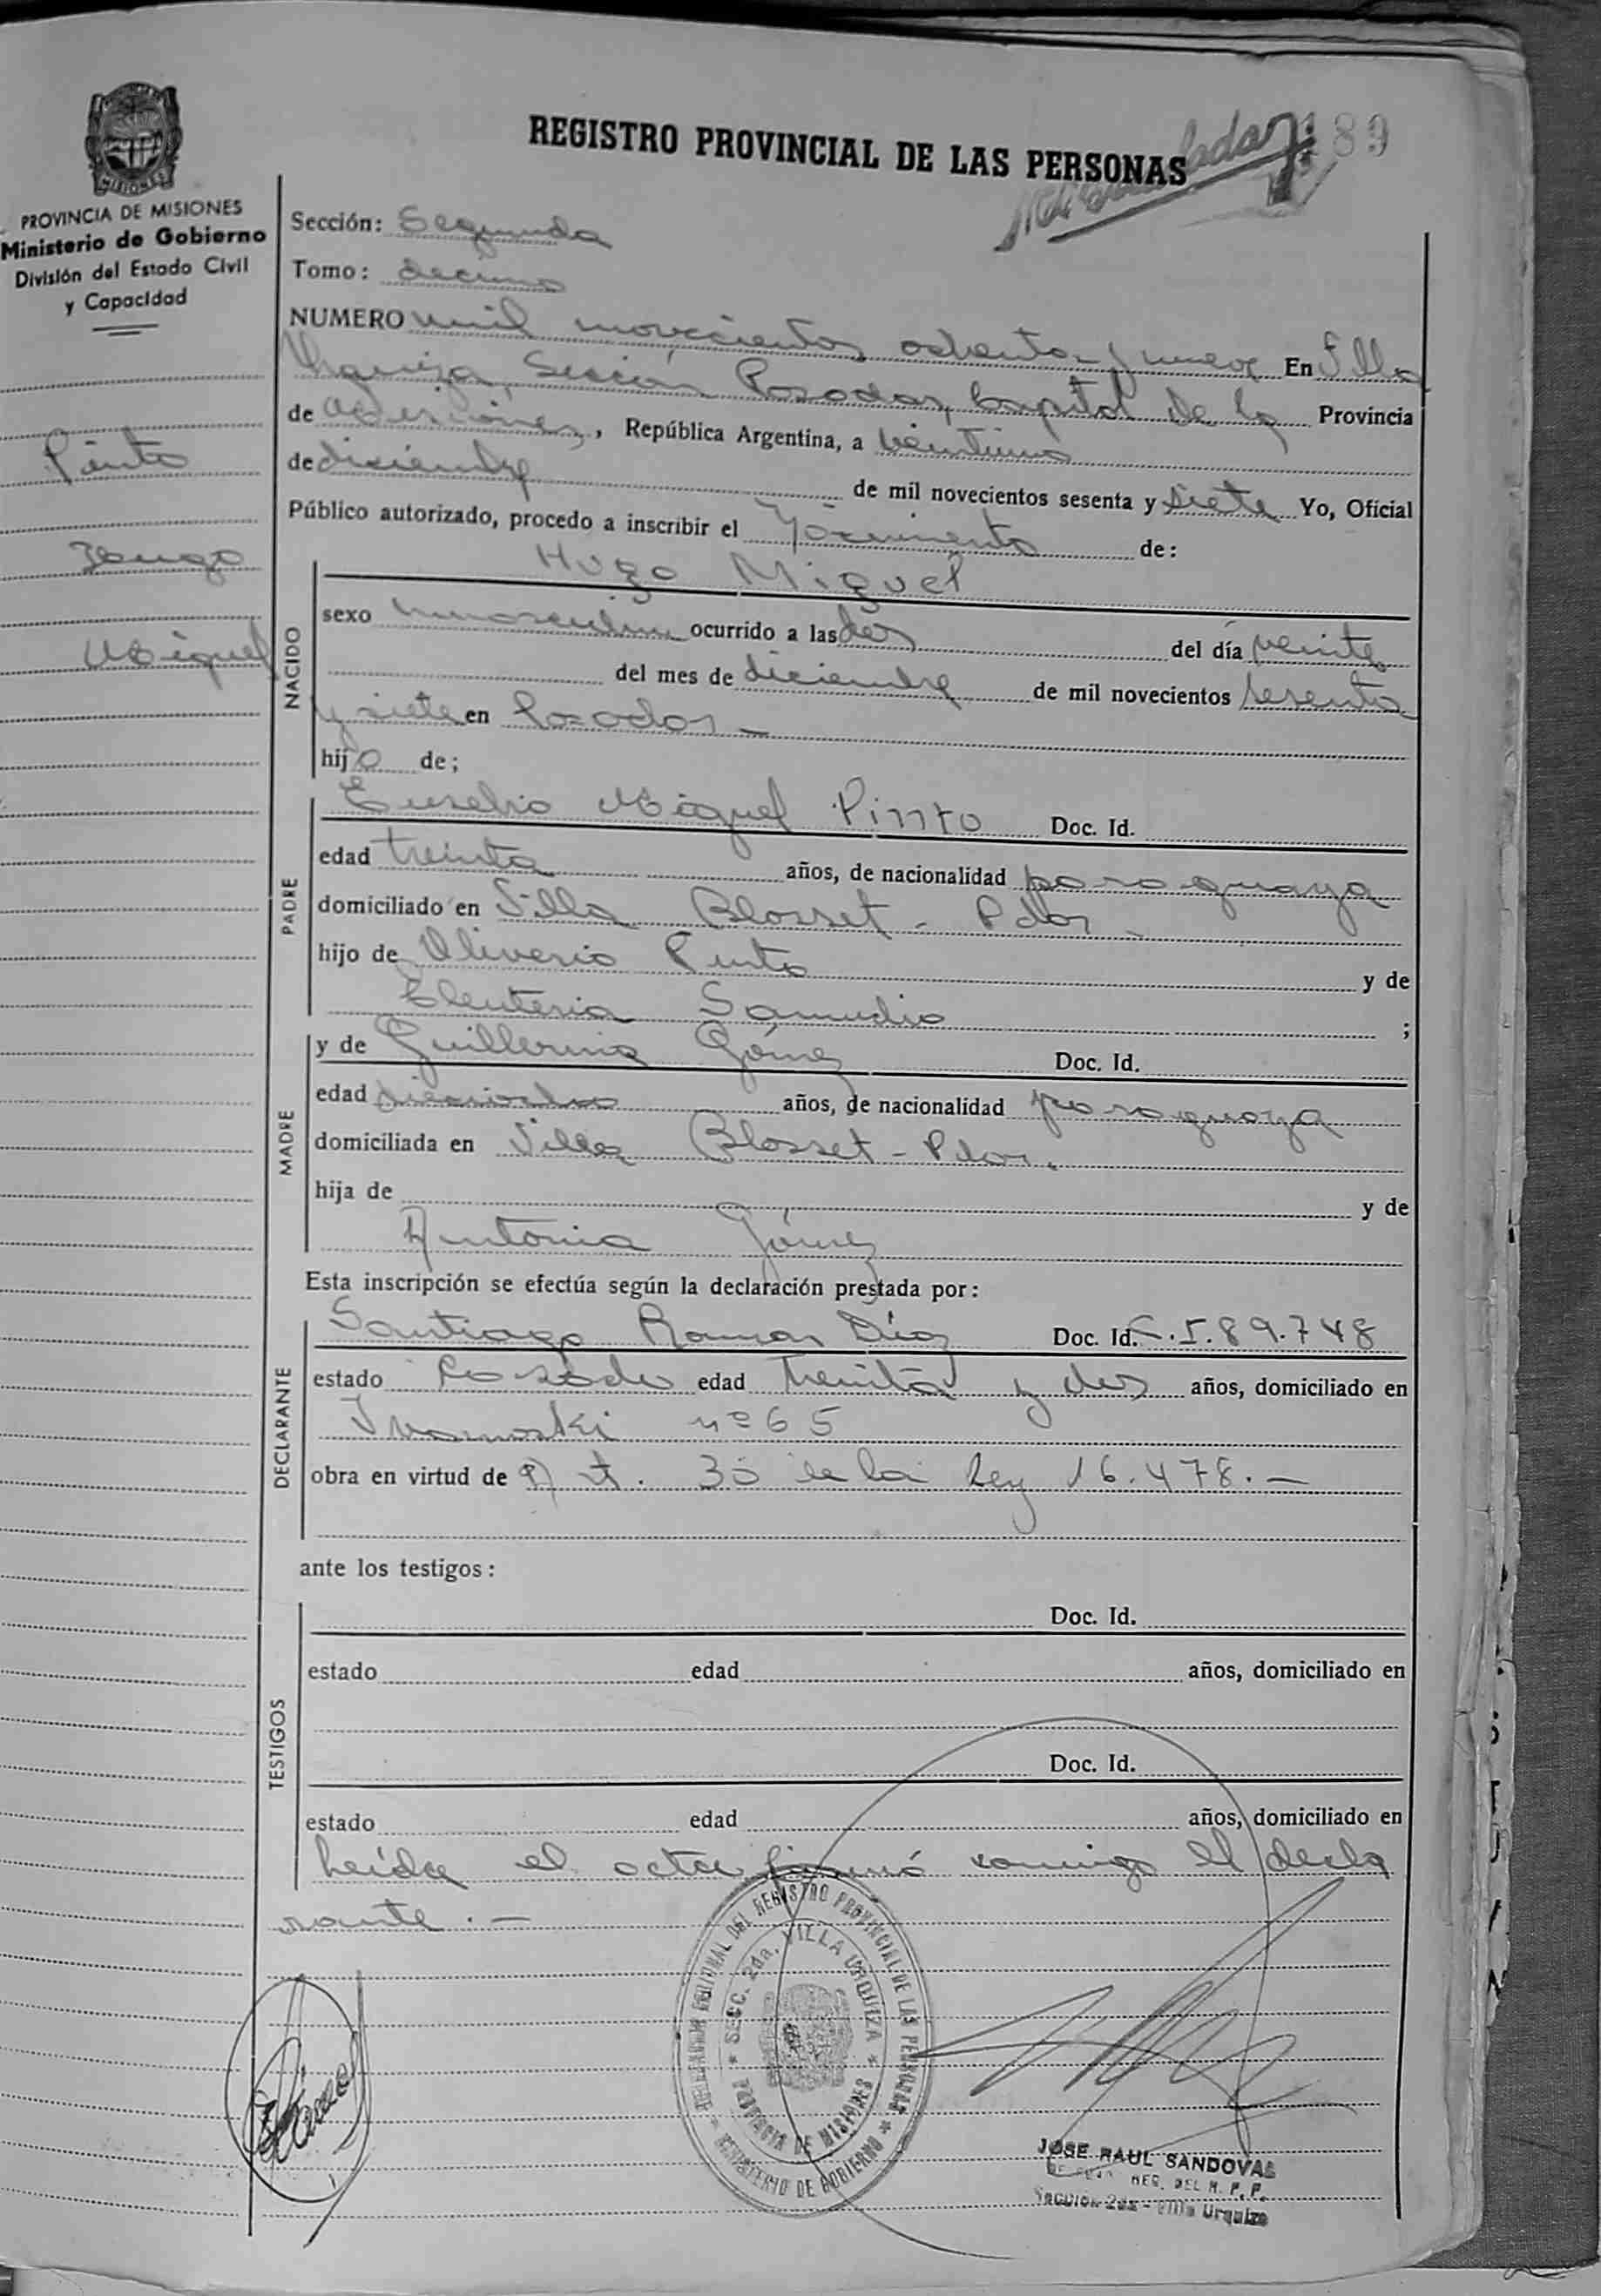 REGISTRO PROVINCIAL DE LAS PERSONAS
189
MISIONES
PROVINCIA DE MISIONES
Ministerio de Gobierno
División del Estado Civil
y Capacidad
Pinto
Hugo
Miguel
Sección: Segunda
Tomo: decimo
NUMERO mil novecientos ochenta y nueve En Villa
Urquiza, Sección Posadas, Capital de la Provincia
de Misiones, República Argentina, a veintiuno
de diciembre de mil novecientos sesenta y siete Yo, Oficial
Público autorizado, procedo a inscribir el de:
Hugo Miguel
NACIDO
sexo masculino ocurrido a las del día veinte
del mes de diciembre de mil novecientos sesenta
y siete en Posadas -
hijo de;
PADRE
Eusebio Miguel Pinto Doc. Id.
edad treinta años, de nacionalidad paraguaya
domiciliado en Villa Blosset - Pdas -
hijo de Oliverio Pinto y de
Eleuteria Samudio ;
MADRE
y de Guillermina Gómez Doc. Id.
edad dieciocho años, de nacionalidad paraguaya
domiciliada en Villa Blosset - Pdas.
hija de y de
Antonia Gómez
Esta inscripción se efectúa según la declaración prestada por:
DECLARANTE
Santiago Ramon Díaz Doc. Id. C.I.89.748
estado Casado edad treinta y dos años, domiciliado en
nº 65
obra en virtud de Art. 30 de la Ley 16.478. —
ante los testigos:
TESTIGOS
Doc. Id.
estado edad años, domiciliado en
Doc. Id.
estado edad años, domiciliado en
Leída el acta firmó conmigo el decla
rante. —
DELEGACION REGIONAL DEL REGISTRO PROVINCIAL DE LAS PERSONAS
MINISTERIO DE GOBIERNO
SECC. 2da. VILLA URQUIZA
PROVINCIA DE MISIONES
JOSE RAUL SANDOVAL
Sección 2da - Villa Urquiza